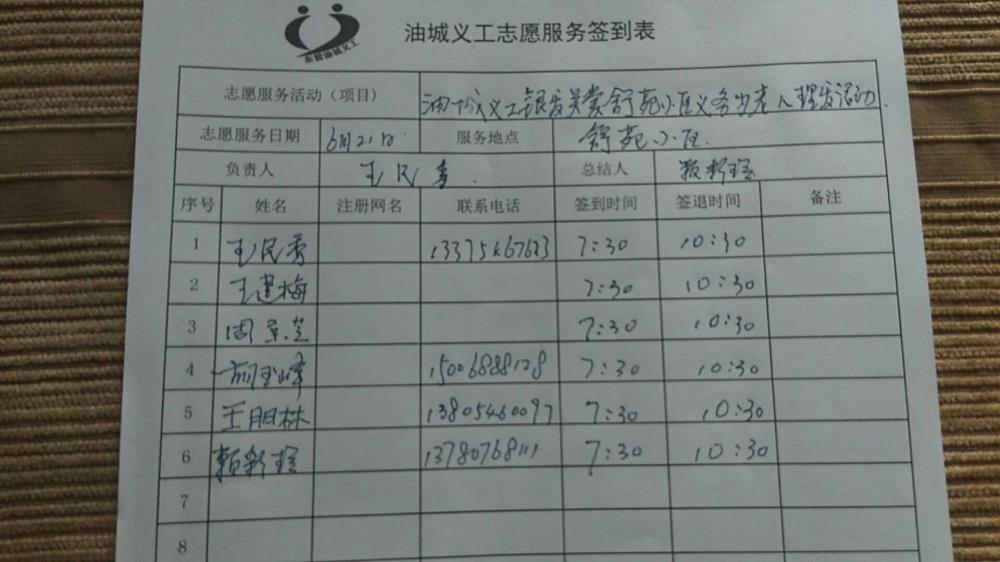 东营油城义工
油城义工志愿服务签到表
志愿服务活动（项目） 油城义工银发关爱舒苑小区义务为老人理发活动
志愿服务日期 6月21日 服务地点 舒苑小区
负责人 王民秀 总结人
序号 姓名 注册网名 联系电话 签到时间 签退时间 备注
1 王民秀 13375467633 7:30 10:30
2 王建梅 7:30 10:30
3 周景芝 7:30 10:30
4 15006888128 7:30 10:30
5 王胆林 13805460097 7:30 10:30
6 13780768111 7:30 10:30
7
8